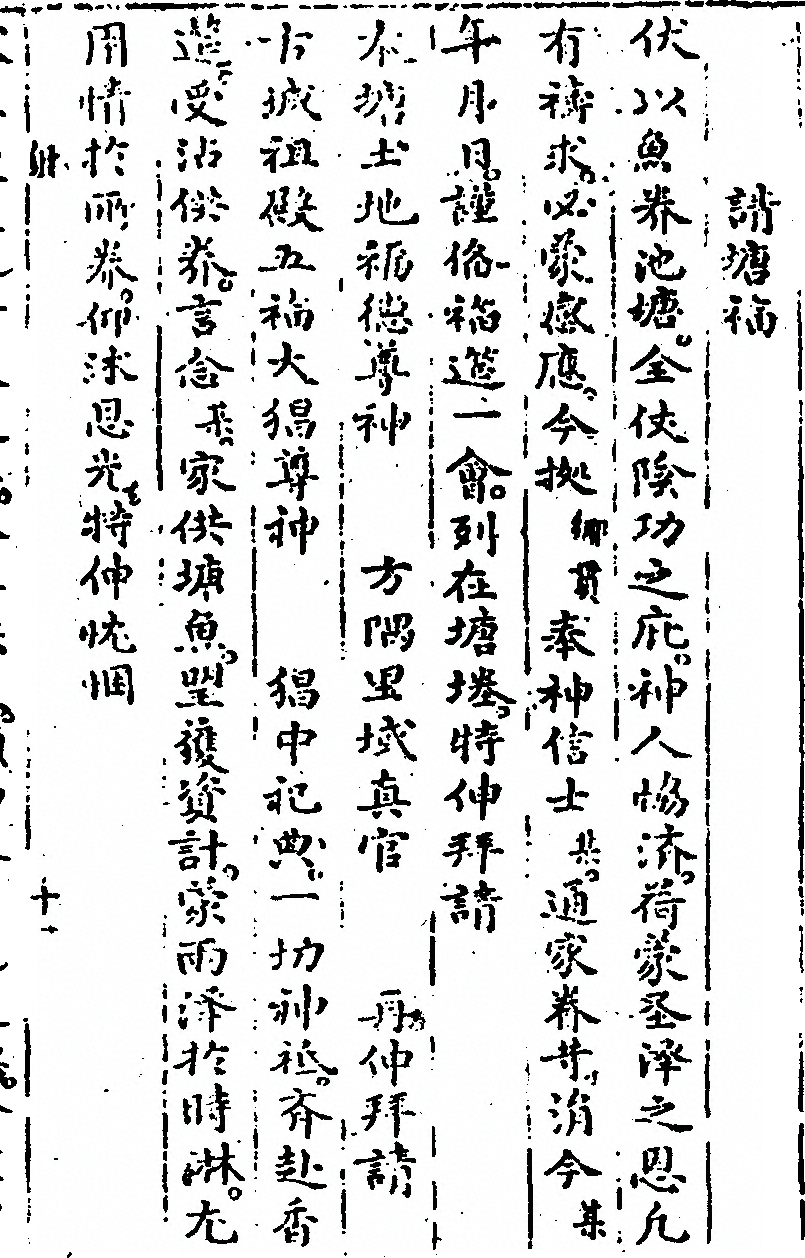 請塘福
伏以魚养池塘。全伏陰功之庇。神人恊济。荷蒙圣泽之恩凡
有禱求。必蒙感應。今拠鄉貫奉神信士某。通家眷等涓今某
年月日。謹俻福筵一會。列在塘塍。特伸拜請
本塘土地福德尊神 方隅里域真官 再伸拜請
古城祖殿五福大猖尊神 猖中祀典一切神祗。齐赴香
筵。受沾供养。言念某家供塘魚。望獲資計。蒙雨泽於時淋。尤
用情於所养。仰沭恩光。特伸忱悃
十一